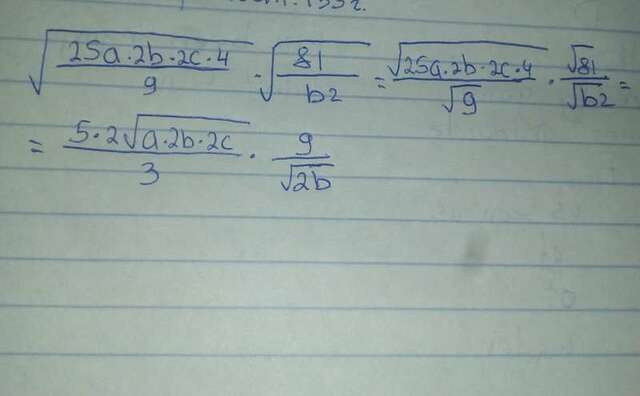 √(25a·2b·2c·4 / 9) · √(81 / b2) = √(25a·2b·2c·4) / √9 · √81 / √b2 =
= 5·2√(a·2b·2c) / 3 · 9 / √2b